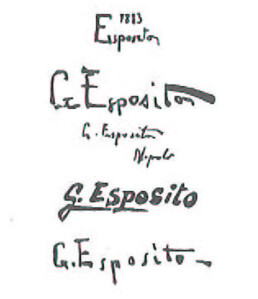 1883
Esposito
G. Esposito
G. Esposito
Napoli
G. Esposito
G. Esposito